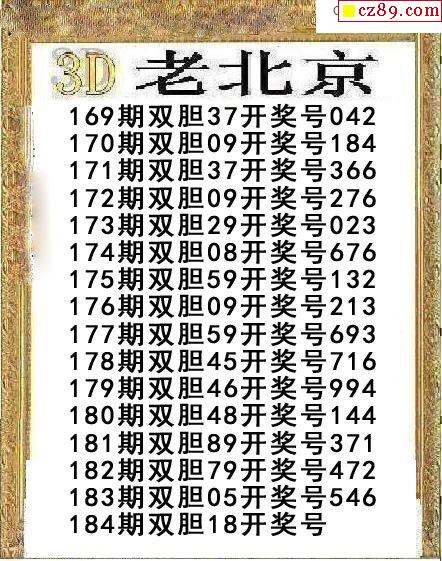 cz89.com
3D 老北京
169期双胆37开奖号042
170期双胆09开奖号184
171期双胆37开奖号366
172期双胆09开奖号276
173期双胆29开奖号023
174期双胆08开奖号676
175期双胆59开奖号132
176期双胆09开奖号213
177期双胆59开奖号693
178期双胆45开奖号716
179期双胆46开奖号994
180期双胆48开奖号144
181期双胆89开奖号371
182期双胆79开奖号472
183期双胆05开奖号546
184期双胆18开奖号